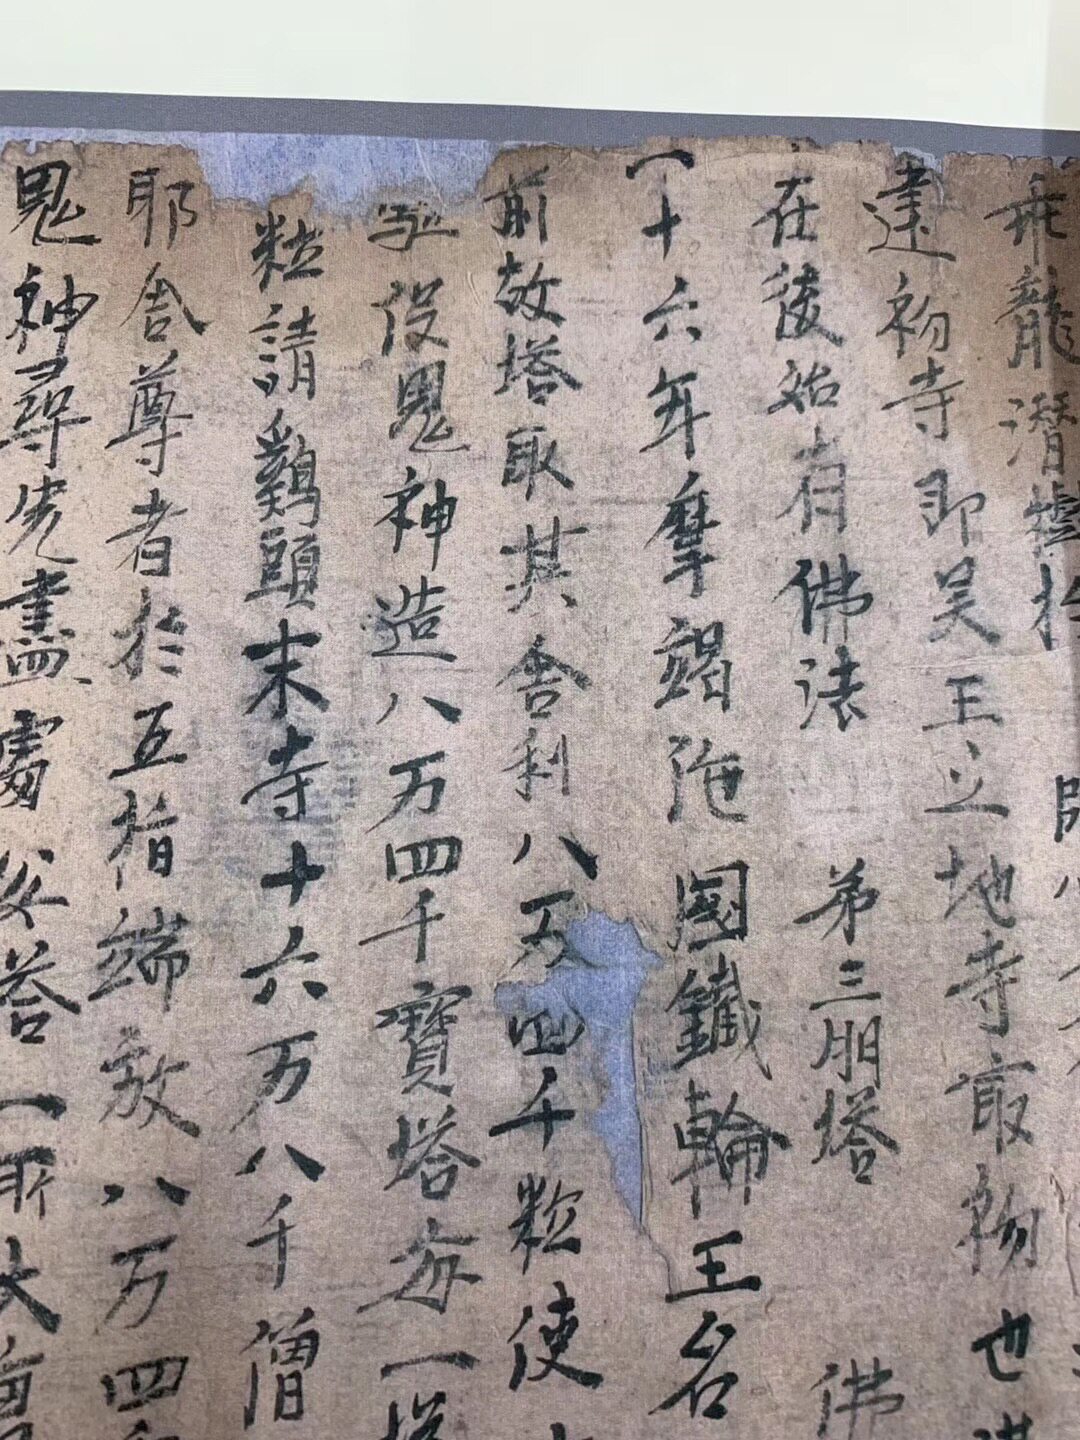 乘龍潛
建初寺即吴王立地寺最初也
在後始有佛法 弟三朋塔 佛
一十六年摩竭陁國鐵輪王名
前故塔取其舍利八万四千粒使
設鬼神造八万四千寶塔每一塔
粒請鷄頭末寺十六万八千僧
耶舍尊者於五指端放八万四
鬼神尋光盡處安塔一所大僧